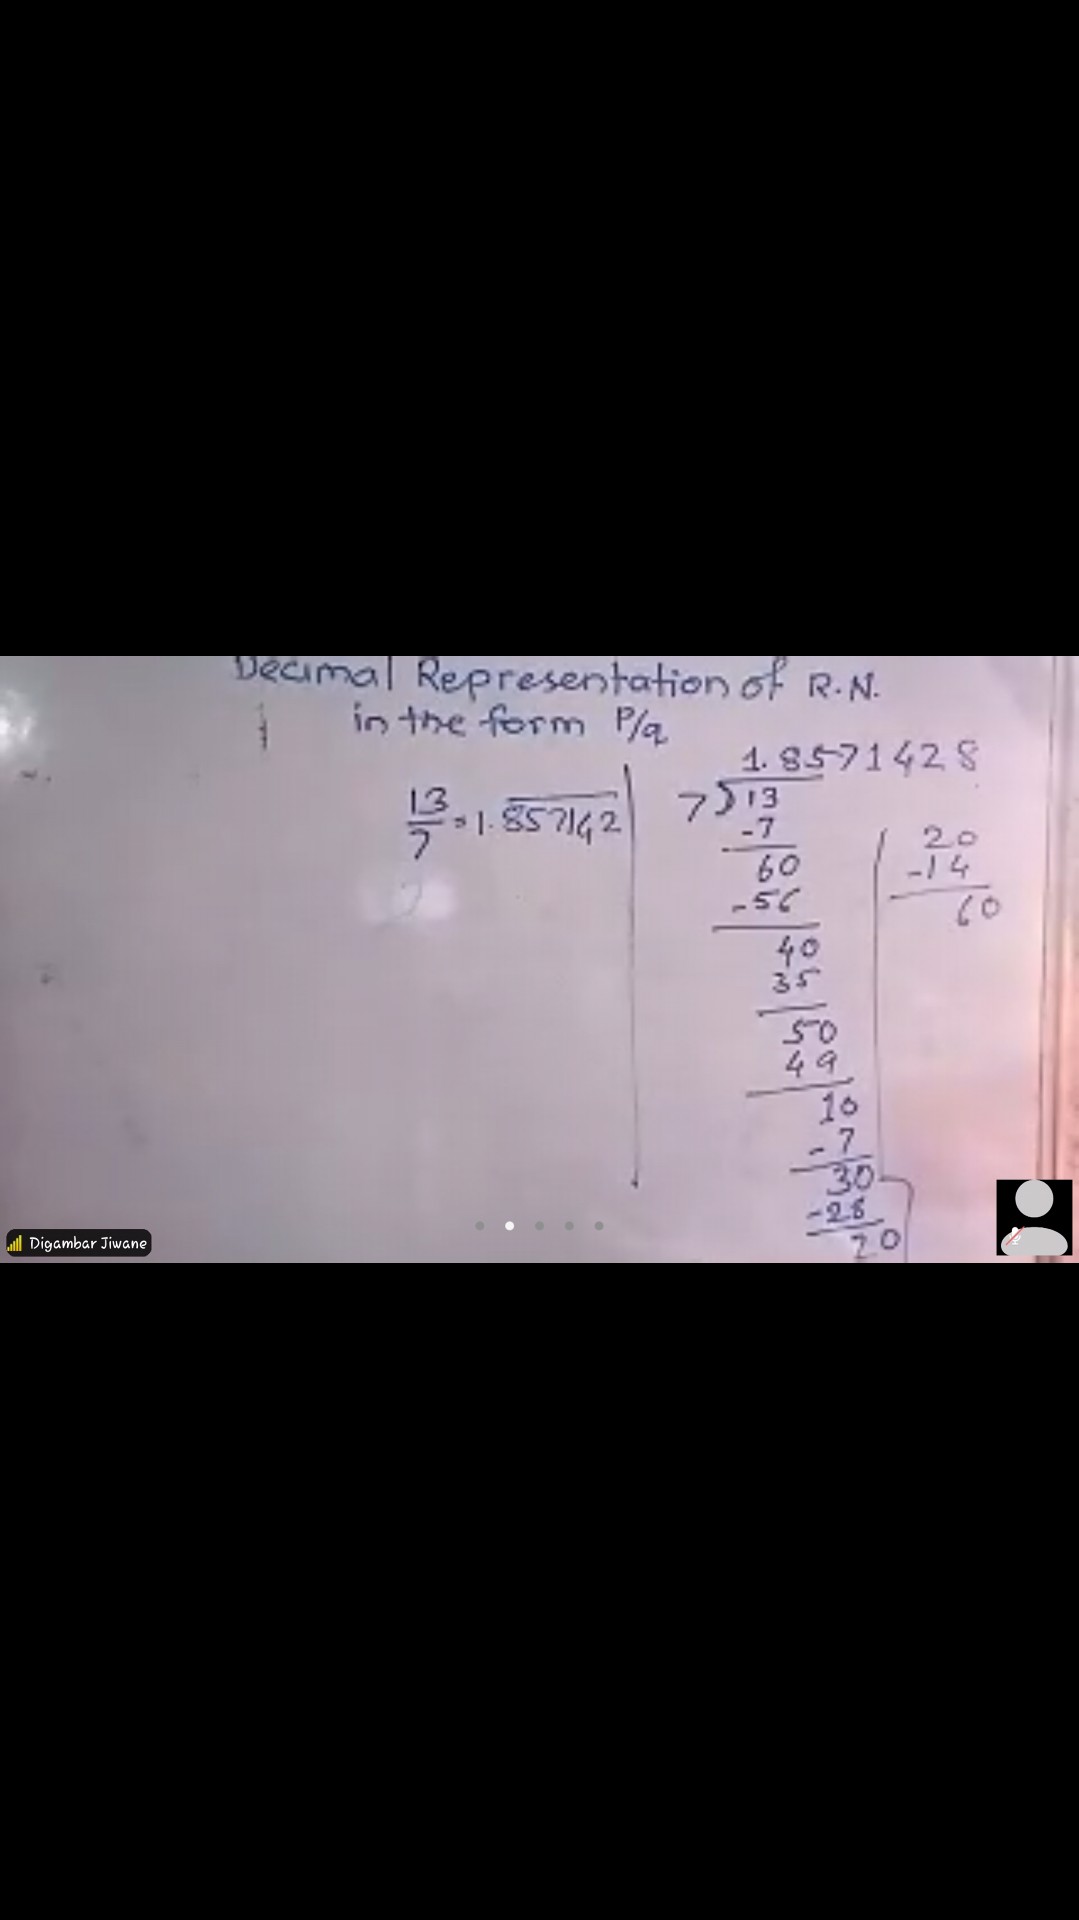 Decimal Representation of R.N.
in the form P/q
13/7 = 1.857142
1.8571428
7)13
-7
60
-56
40
35
50
49
10
-7
30
-28
20
20
-14
60
Digambar Jiwane